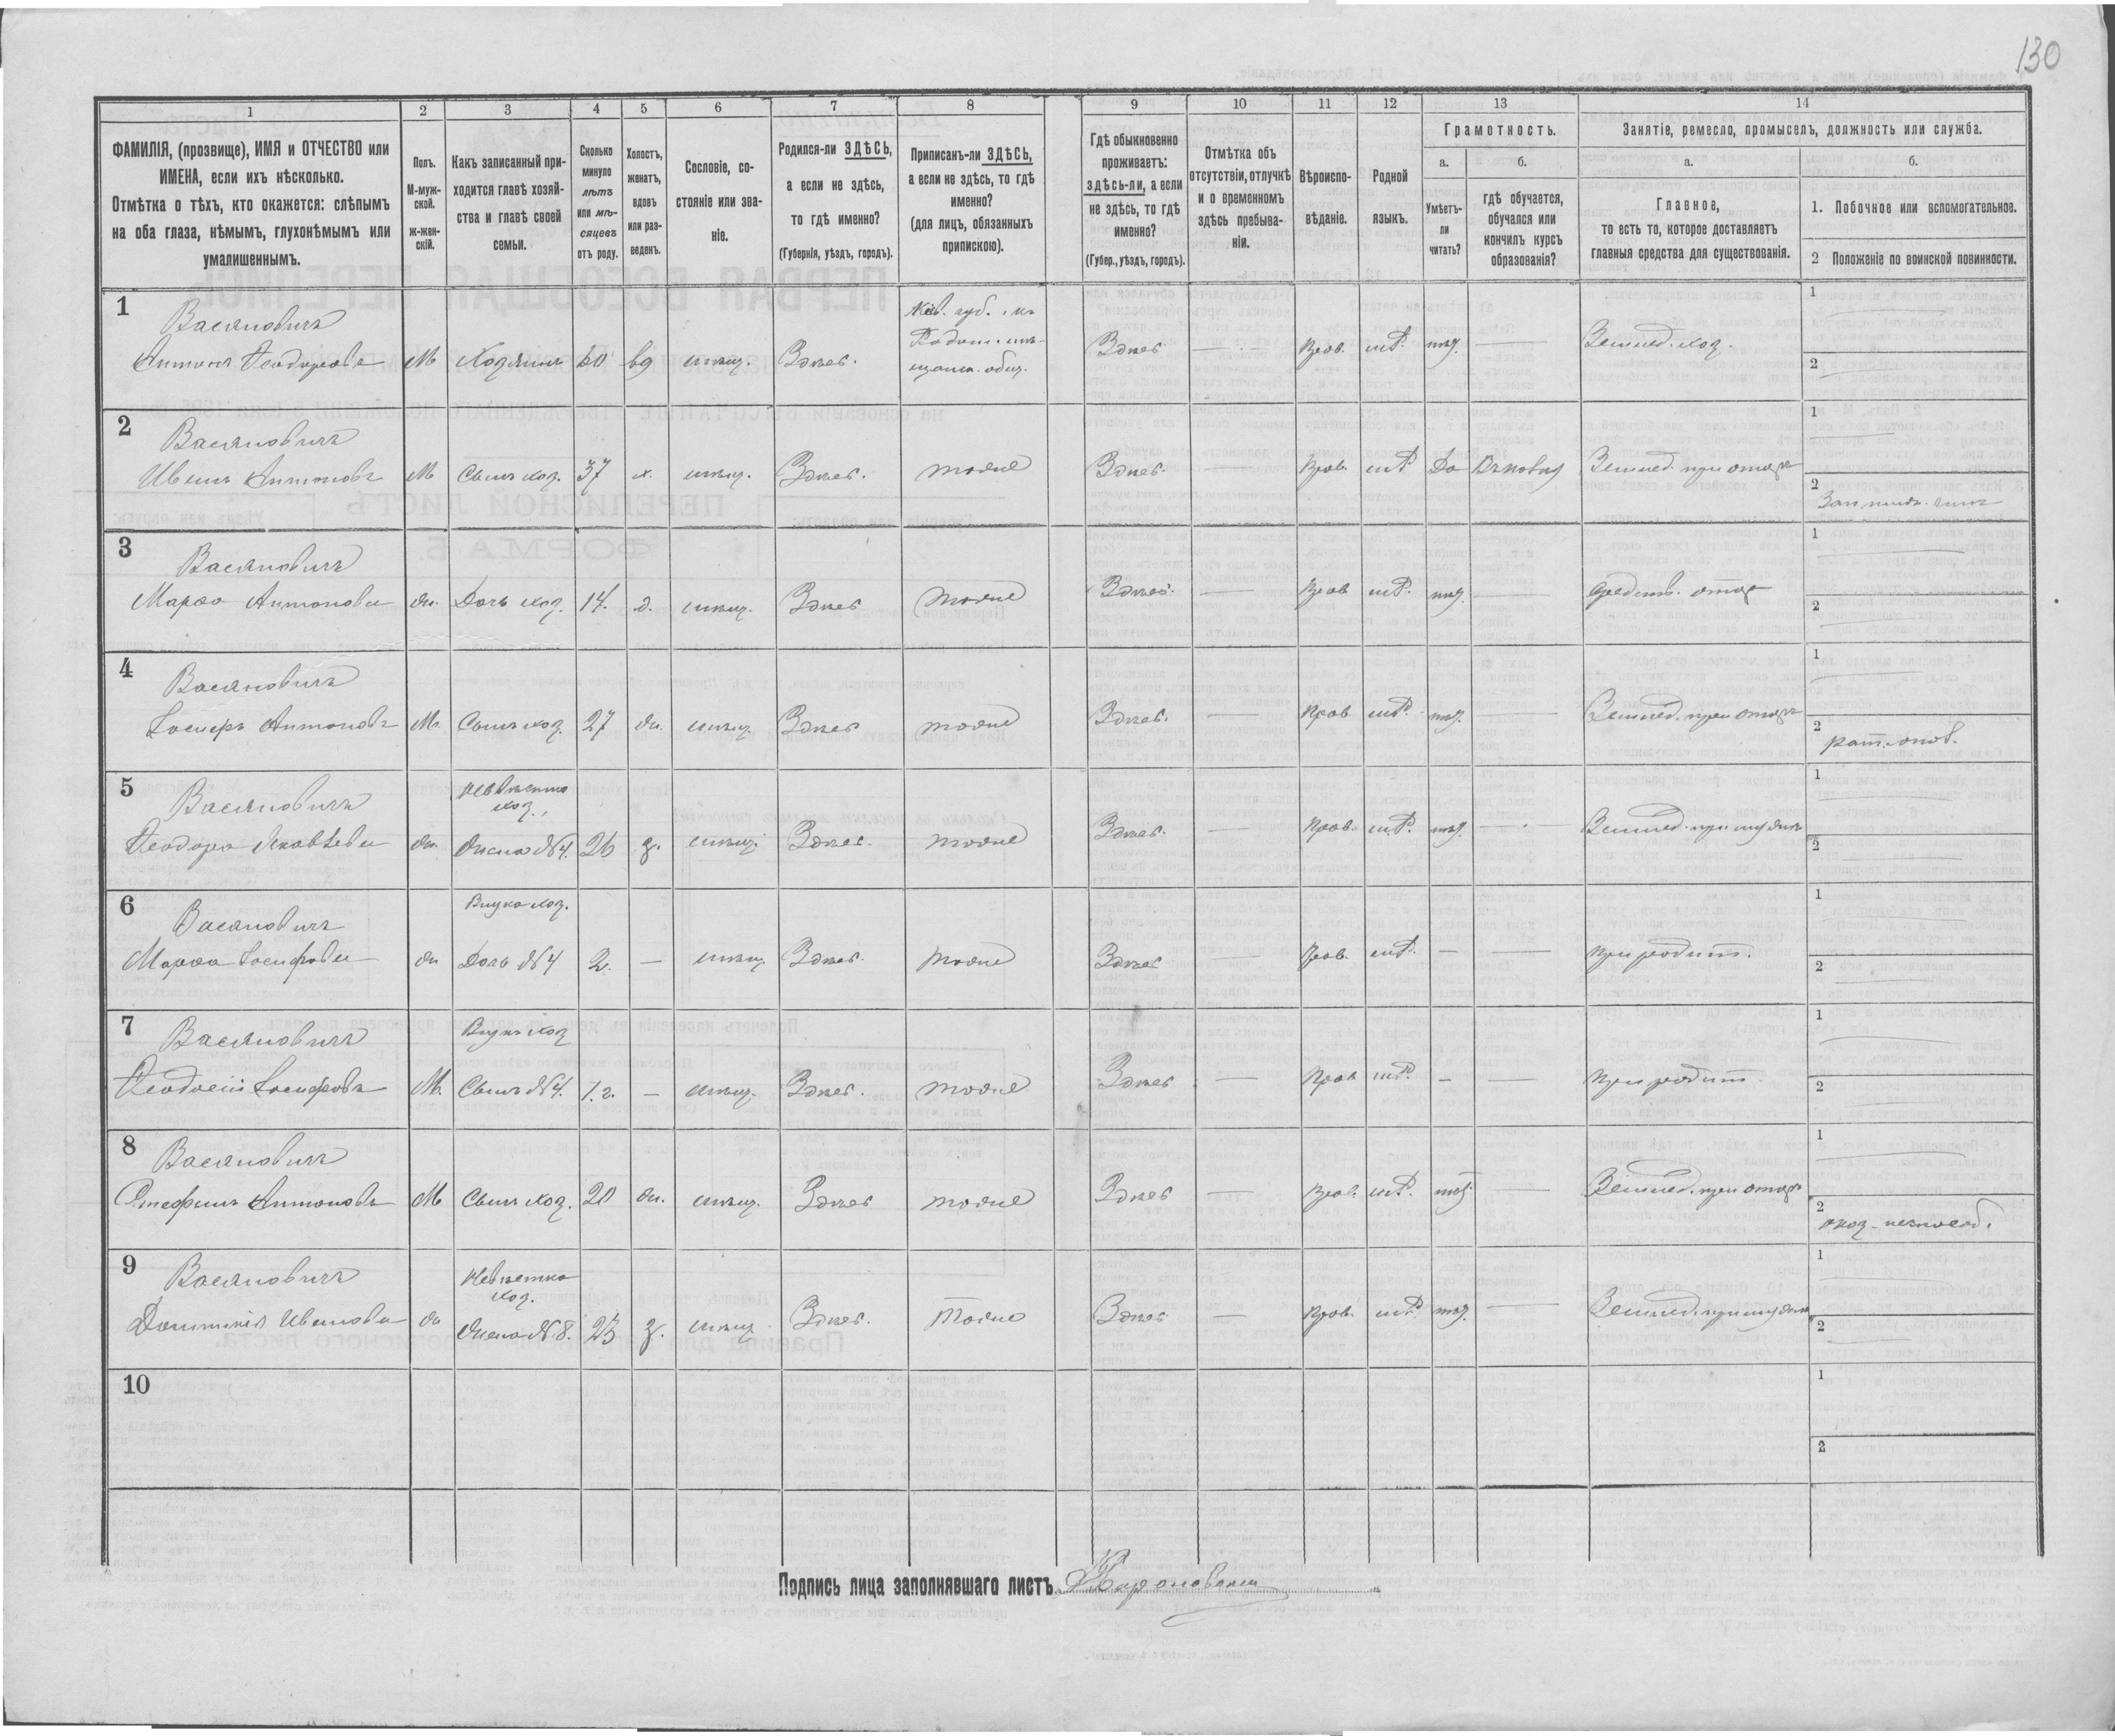 130
1 2 3 4 5 6 7 8 9 10 11 12 13 14
ФАМИЛІЯ, (прозвище), ИМЯ и ОТЧЕСТВО или
ИМЕНА, если ихъ нѣсколько.
Отмѣтка о тѣхъ, кто окажется: слѣпымъ
на оба глаза, нѣмымъ, глухонѣмымъ или
умалишеннымъ.
Полъ.
М-муж-
ской.
ж-жен-
скій.
Какъ записанный при-
ходится главѣ хозяй-
ства и главѣ своей
семьи.
Сколько
минуло
лѣтъ
или мѣ-
сяцевъ
отъ роду.
Холостъ,
женатъ,
вдовъ
или раз-
веденъ.
Сословіе, со-
стояніе или зва-
ніе.
Родился-ли ЗДѢСЬ,
а если не здѣсь,
то гдѣ именно?
(Губернія, уѣздъ, городъ).
Приписанъ-ли ЗДѢСЬ,
а если не здѣсь, то гдѣ
именно?
(для лицъ, обязанныхъ
припискою).
Гдѣ обыкновенно
проживаетъ:
здѣсь-ли, а если
не здѣсь, то гдѣ
именно?
(Губер., уѣздъ, городъ).
Отмѣтка объ
отсутствіи, отлучкѣ
и о временномъ
здѣсь пребыва-
ніи.
Вѣроиспо-
вѣданіе.
Родной
языкъ.
Грамотность.
а.
Умѣетъ-
ли
читать?
б.
гдѣ обучается,
обучался или
кончилъ курсъ
образованія?
Занятіе, ремесло, промыселъ, должность или служба.
а.
Главное,
то есть то, которое доставляетъ
главныя средства для существованія.
б.
1. Побочное или вспомогательное.
2 Положеніе по воинской повинности.
1
Васяновичъ
Антонъ Ѳеодоровъ М Хозяинъ 60 вд мѣщ. Здѣсь. Кіев. губ.
Здѣсь прав. нѣт. Землед. хоз.
1
2
2
Васяновичъ
Иванъ Антоновъ М Сынъ хоз. 37 х. мѣщ. Здѣсь. тоже
Здѣсь. прав. Да Землед. при отцѣ
1
2
3
Васяновичъ
Марѳа Антонова ж. Дочь хоз. 14. д. мѣщ. Здѣсь тоже
Здѣсь. прав нѣт. отца
1
2
4
Васяновичъ
Іосифъ Антоновъ М. Сынъ хоз. 27 ж. мѣщ. Здѣсь тоже
Здѣсь. прав нѣт. Землед. при отцѣ
1
2
рат. опол.
5
Васяновичъ
Ѳеодора Яковлева ж.
Невѣстка
хоз.,
Жена №4. 26 з. мѣщ. Здѣсь. тоже
Здѣсь. прав. нѣт. Землед. при мужѣ
1
2
6
Васяновичъ
Марѳа Іосифова ж
Внука хоз.
Дочь №4 2. — мѣщ. Здѣсь. тоже
Здѣсь прав. — при родит.
1
2
7
Васяновичъ
Ѳеодосій Іосифовъ М.
Внукъ хоз
Сынъ №4. 1. г. — мѣщ. Здѣсь. тоже
Здѣсь прав — при родит.
1
2
8
Васяновичъ
Стефанъ Антоновъ М Сынъ хоз. 20 ж. мѣщ. Здѣсь тоже
Здѣсь прав. нѣт. Землед. при отцѣ
1
2
9
Васяновичъ
Домникія Иванова ж
Невѣстка
хоз.
Жена №8. 23 з. мѣщ Здѣсь. Тоже
Здѣсь прав. нѣт. Землед. при мужѣ
1
2
10
1
2
Подпись лица заполнявшаго листъ